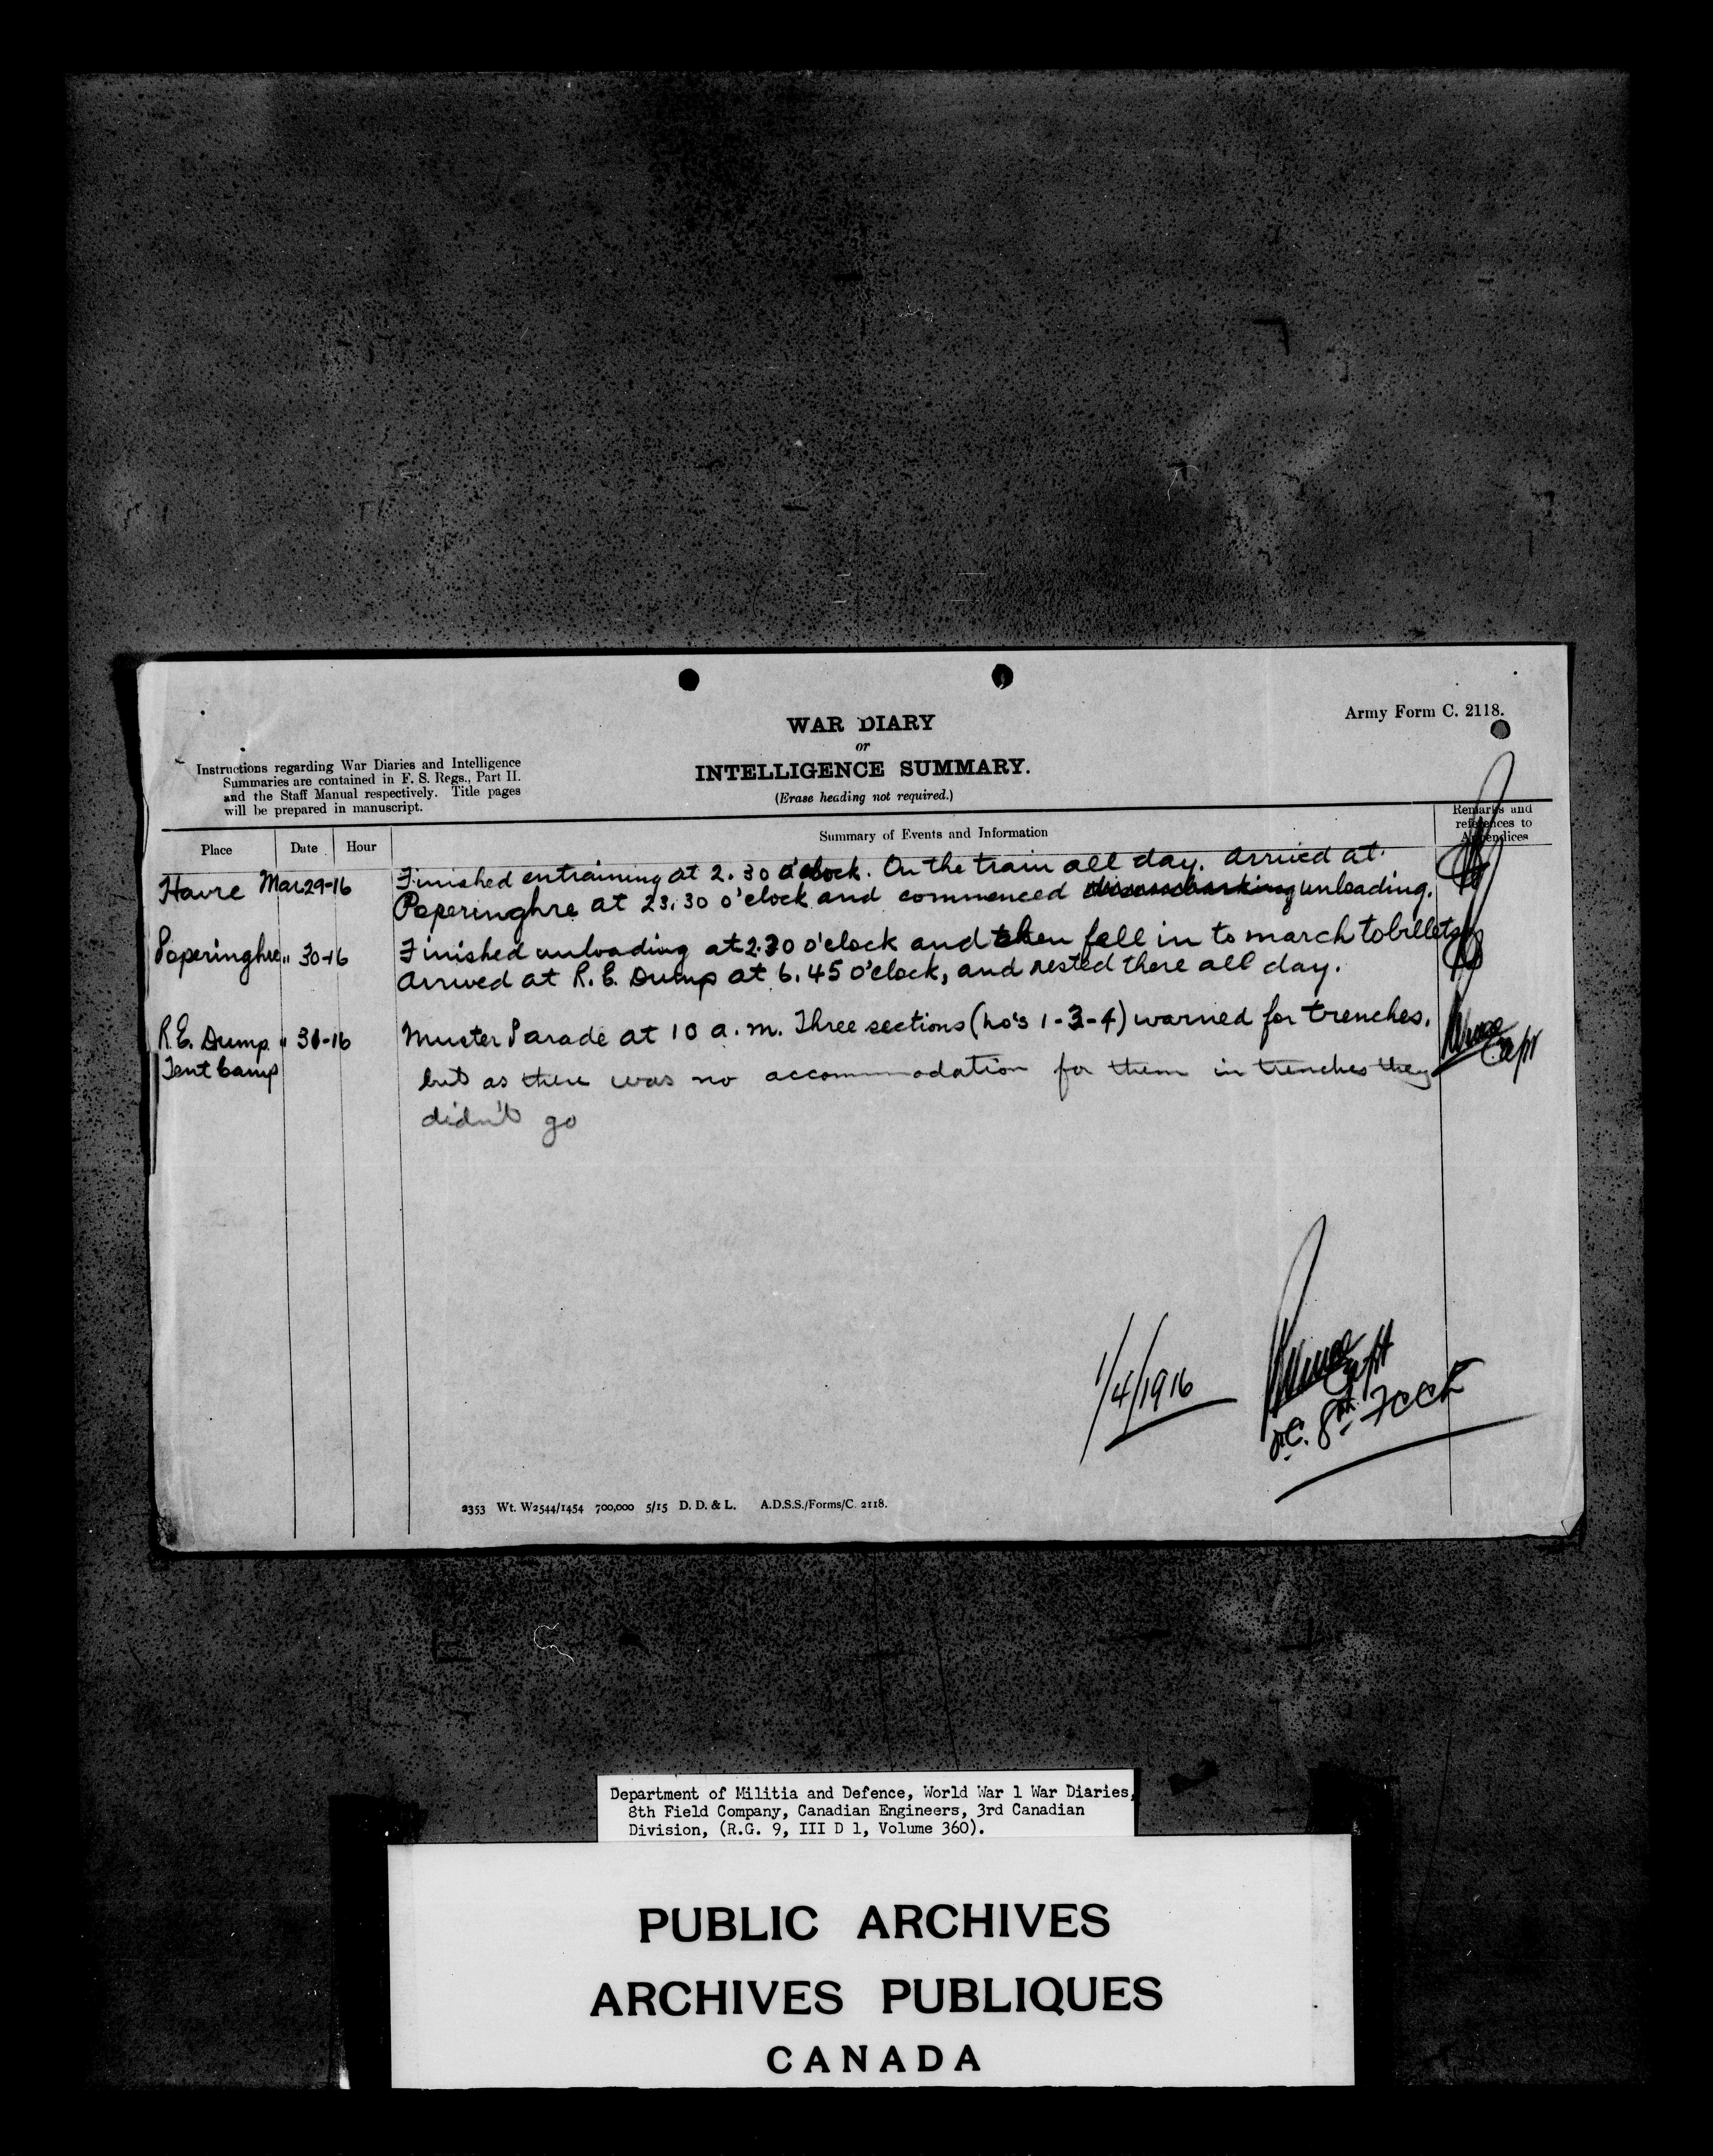 Army Form C. 2118.
WAR DIARY
or
INTELLIGENCE SUMMARY.
(Erase heading not required.)
Instructions regarding War Diaries and Intelligence
Summaries are contained in F. S. Regs., Part II.
and the Staff Manual respectively. Title pages
will be prepared in manuscript.
Place Date Hour Summary of Events and Information Remarks and
references to
Appendices
Havre Mar 29-16 Finished entraining at 2.30 o'clock. On the train all day. Arrived at
Poperinghre at 23.30 o'clock and commenced unloading.
Poperinghe " 30-16 Finished unloading at 2.30 o'clock and then fell in to march to billets
Arrived at R.E. Dump at 6.45 o'clock, and rested there all day.
R.E. Dump " 31-16 Muster Parade at 10 a.m. Three sections (No's 1-3-4) warned for trenches.
Tent Camp but as there was no accommodation for them in trenches they
didn't go
Capt
1/4/1916
Capt
O.C. 8th FCCE
2353 Wt. W2544/1454 700,000 5/15 D. D. & L. A.D.S.S./Forms/C. 2118.
Department of Militia and Defence, World War 1 War Diaries,
8th Field Company, Canadian Engineers, 3rd Canadian
Division, (R.G. 9, III D 1, Volume 360).
PUBLIC ARCHIVES
ARCHIVES PUBLIQUES
CANADA